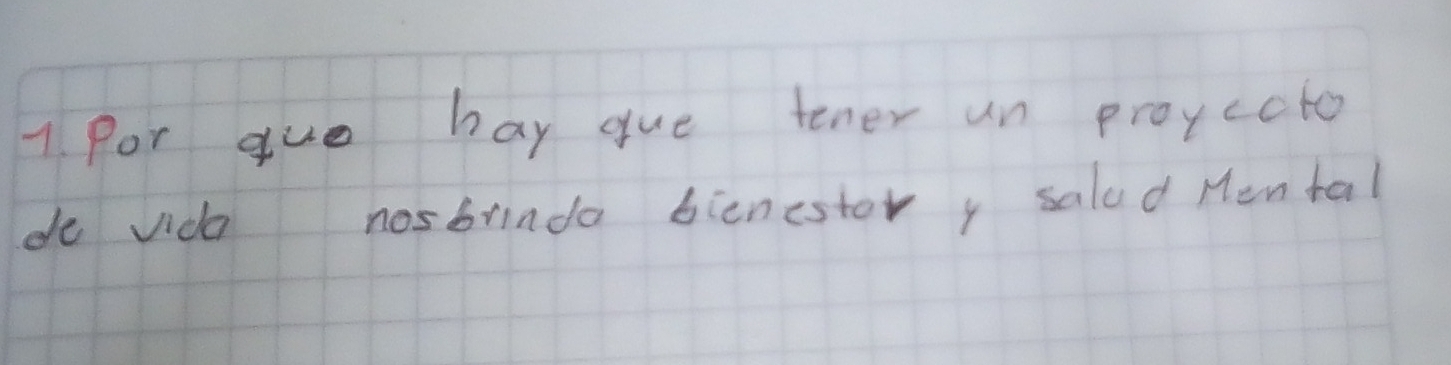 1. Por que hay que tener un proyecto
de vida nos brinda bienestar y salud Mental